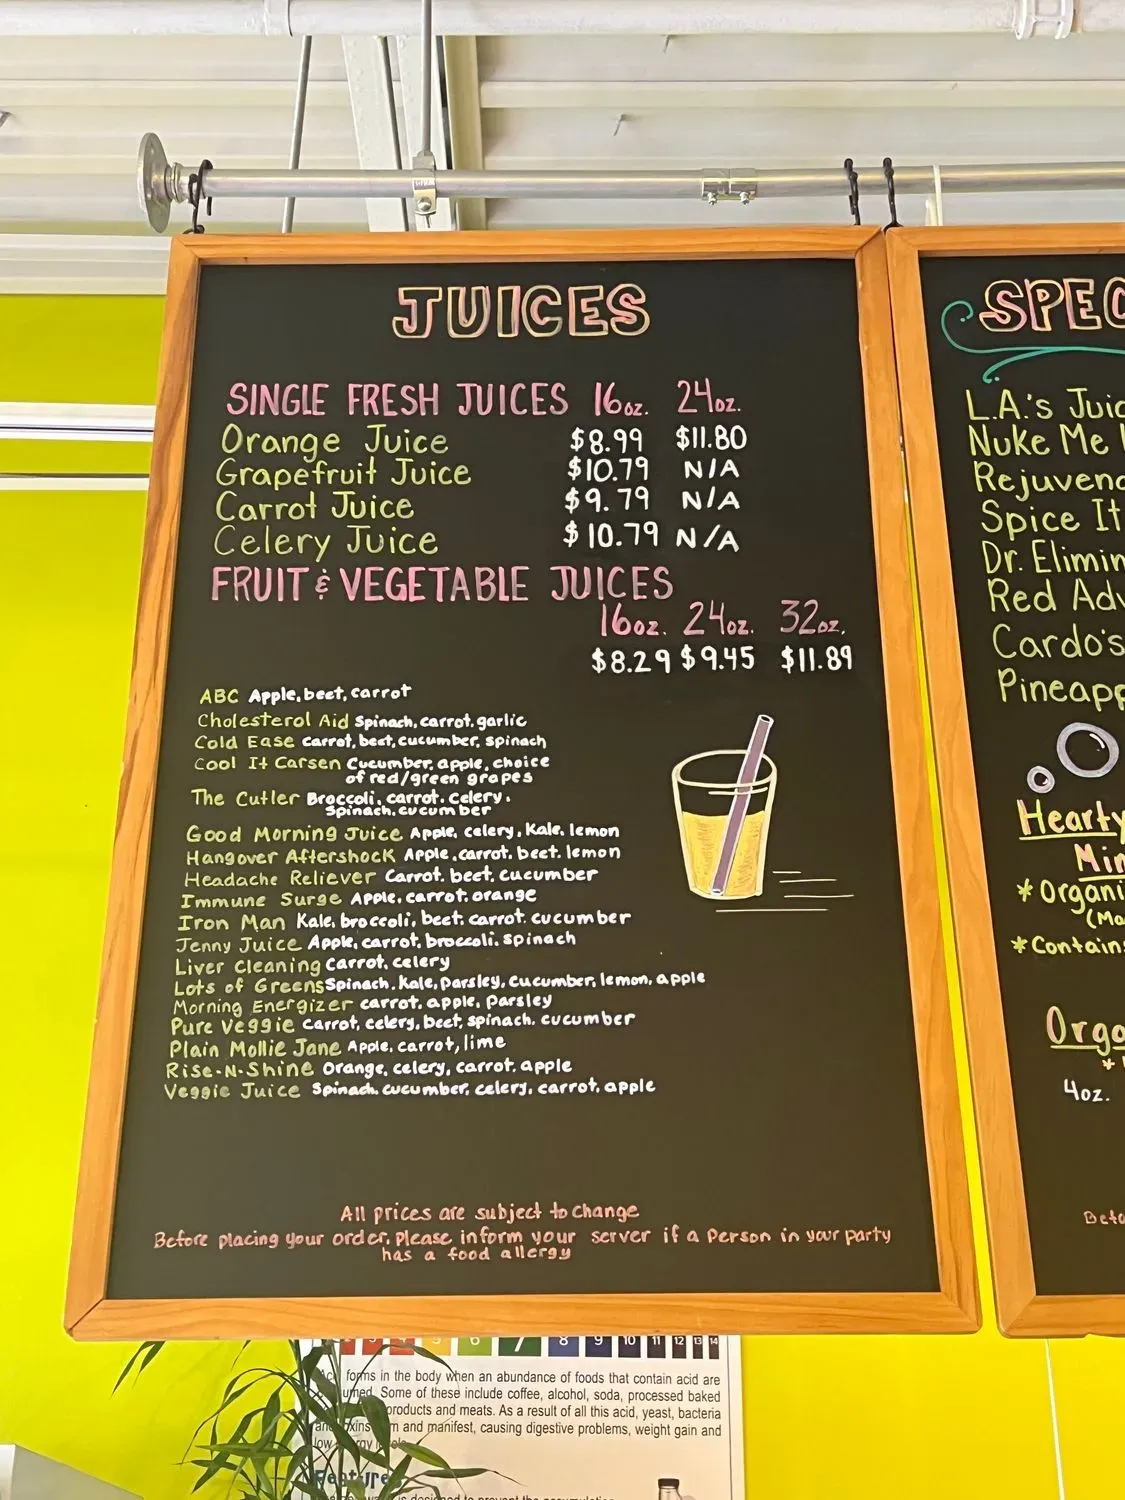 JUICES
SINGLE FRESH JUICES 16oz. 24oz.
Orange Juice $8.99 $11.80
Grapefruit Juice $10.79 N/A
Carrot Juice $9.79 N/A
Celery Juice $10.79 N/A
FRUIT & VEGETABLE JUICES
16oz. 24oz. 32oz.
$8.29 $9.45 $11.89
ABC Apple, beet, carrot
Cholesterol Aid Spinach, carrot, garlic
Cold Ease Carrot, beet, cucumber, spinach
Cool It Carsen Cucumber, apple, choice
of red/green grapes
The Cutler Broccoli, carrot, celery,
Spinach, cucumber
Good Morning Juice Apple, celery, Kale, lemon
Hangover Aftershock Apple, carrot, beet, lemon
Headache Reliever Carrot, beet, cucumber
Immune Surge Apple, carrot, orange
Iron Man Kale, broccoli, beet, carrot cucumber
Jenny Juice Apple, carrot, broccoli, spinach
Liver Cleaning Carrot, celery
Lots of Greens Spinach, Kale, Parsley, cucumber, lemon, apple
Morning Energizer carrot, apple, Parsley
Pure Veggie Carrot, celery, beet, spinach, cucumber
Plain Mollie Jane Apple, carrot, lime
Rise-N-Shine Orange, celery, carrot, apple
Veggie Juice Spinach, cucumber, celery, carrot, apple
All prices are subject to change
Before placing your order, please inform your server if a person in your party
has a food allergy
L.A.'s
Nuke Me
Spice It
Dr.
Red
Cardo's
Hearty
4oz.
6 7 8 9 10 11 12 13 14
forms in the body when an abundance of foods that contain acid are
Some of these include coffee, alcohol, soda, processed baked
products and meats. As a result of all this acid, yeast, bacteria
and manifest, causing digestive problems, weight gain and